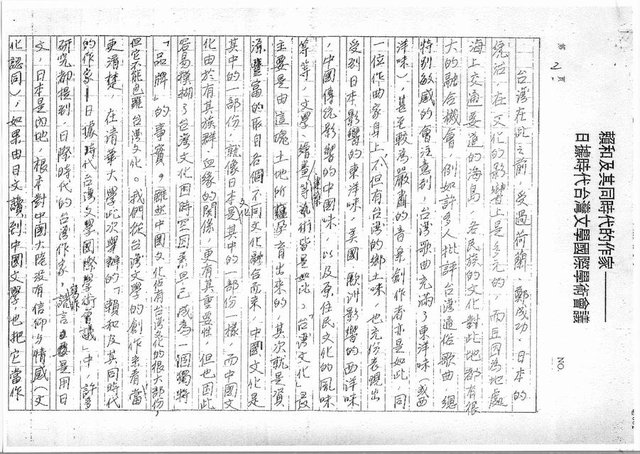 賴和及其同時代的作家——
日據時代台灣文學國際學術會議
第 2 頁
NO.
台灣在此之前,受過荷蘭、鄭成功、日本的
統治,在文化的影響上是多元的,而且因為地處
海上交通要道的海島,各民族的文化對此地都有很
大的融合機會,例如許多人批評台灣通俗歌曲,總
特別敏感的會注意到,台灣歌曲充滿了東洋味(或西
洋味),甚至較為嚴肅的音樂創作者亦是如此,同
一位作曲家身上,不但有台灣的鄉土味,也充份表現出
受到日本影響的東洋味、美國、歐洲影響的西洋味
、中國傳統影響的中國味,以及原住民文化的風味
等等,文學、繪畫、建築等藝術皆是如此,「台灣文化」最
主要是由這塊土地所孕育出來的,其次就是資
源豐富的取自各個不同文化融合而來,中國文化是
其中的一部份,就像日本文化是其中的一部份一樣,而中國文
化由於有其族群、血緣的關係,更有其重要性,但也因此
容易模糊了台灣文化因時空因素早已成為一個獨特
「品牌」的事實。雖然中國文化佔有台灣文化的很大部份,
但它不能也非台灣文化。我們從台灣文學的創作來看當
更清楚,在清華大學此次舉辦的「賴和及其同時代
的作家:日據時代台灣文學國際學術會議」中,許多
研究都提到,日據時代的台灣作家,語言是用日
文,日本是內地,根本對中國大陸沒有信仰與情感(文
化認同),如果由日文讀到中國文學,也把它當作